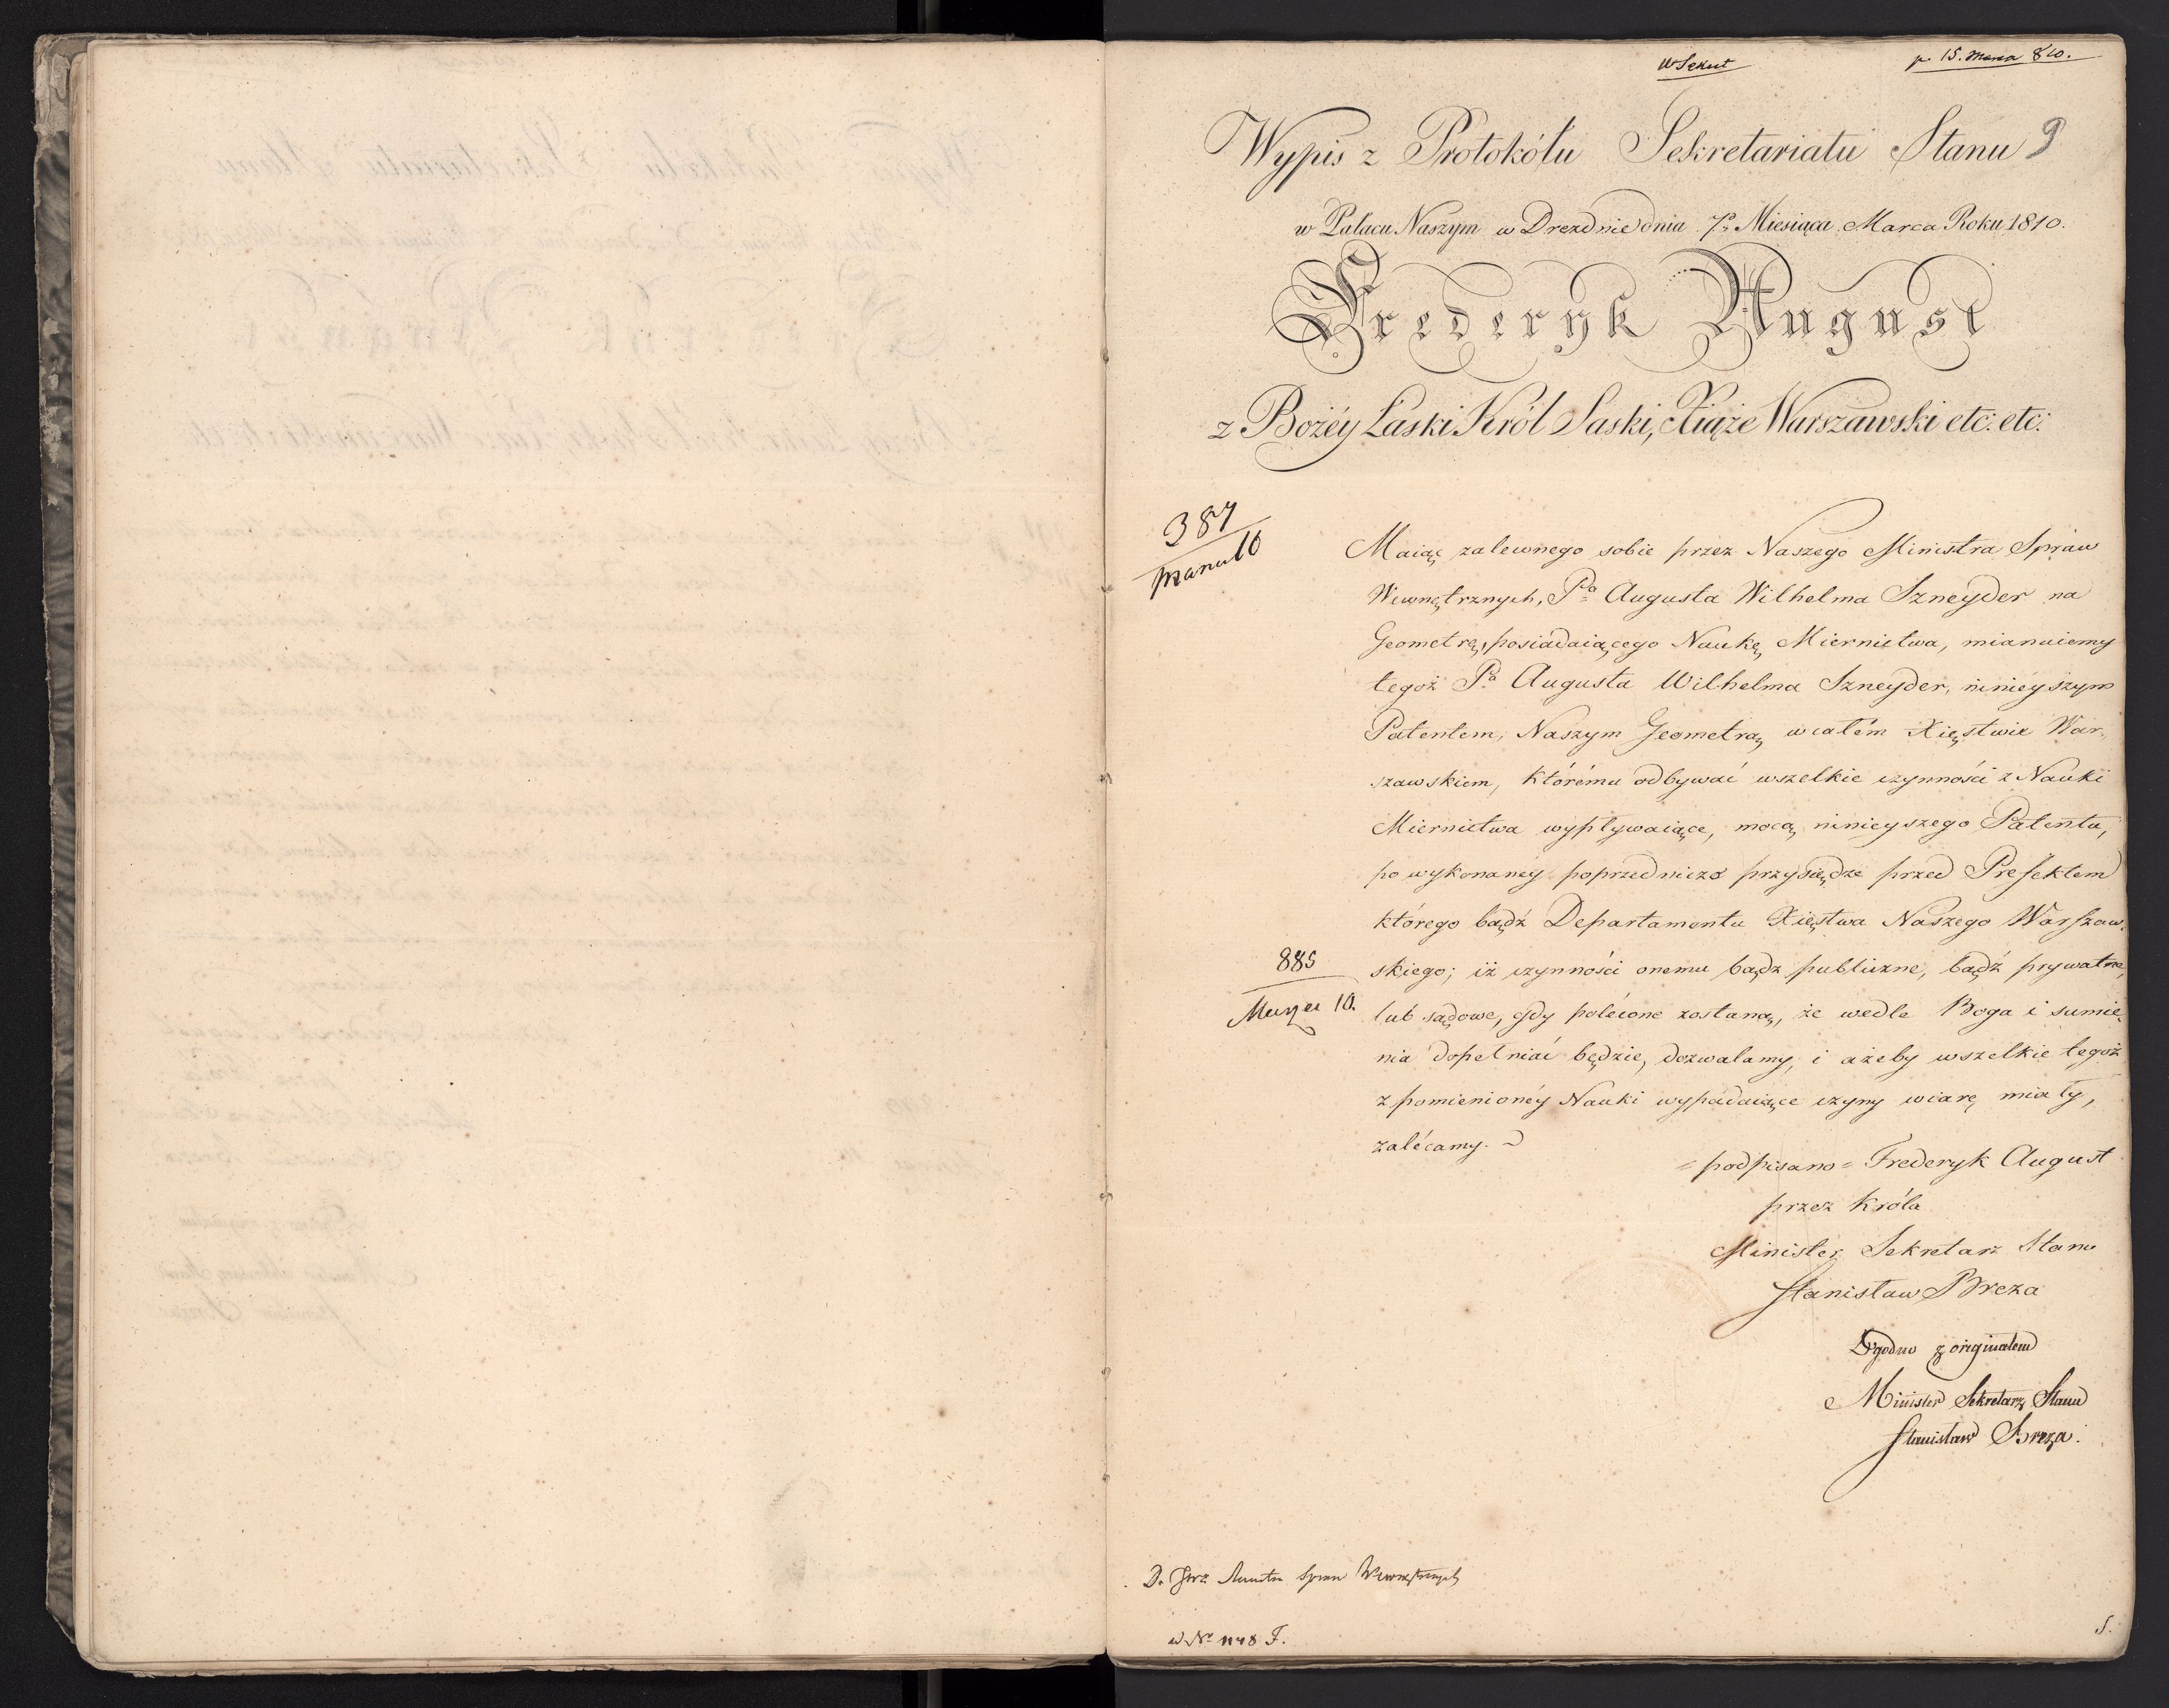 p. 15. Marca 810.
Wypis z Protokółu Sekretariatu Stanu 9
w Pałacu Naszym w Dreznie dnia 7º Miesiąca Marca Roku 1810.
Frederyk August
z Bożéy Łaski Król Saski, Xiąże Warszawski etc: etc:
387
10
Maiąc zalewnego sobie przez Naszego Ministra Spraw
Wewnętrznych, Pa Augusta Wilhelma Szneyder na
Geometrę, posiadaiącego Naukę Miernictwa, mianuiemy
tegoż Pa Augusta Wilhelma Szneyder, ninieyszym
Patentem, Naszym Geometrą w całém Xięstwie War„
szawskiem, którému odbywać wszelkie czynności z Nauki
Miernictwa wypływaiące, mocą ninieyszego Patentu,
po wykonanéy poprzedniczo przysiędze przed Prefektem
którego bądź Departamentu Xięstwa Naszego Warszaw„
885
skiego; iż czynności onemu bądz publiczne, bądź prywatne,
10.
lub sądowe, gdy polécone zostaną, że wedle Boga i sumie„
nia dopełniać będzie, dozwalamy, i ażeby wszelkie tegoż
z pomienionéy Nauki wypadaiące czyny wiarę miały,
zalécamy.
= podpisano = Frederyk August
przez Króla
Minister Sekretarz Stanu
Stanisław Breza
Zgodno z originalem
Minister Sekretarz Stanu
Stanisław Breza.
Spraw Wewnętrznych
w Nº 1148 F.
S.